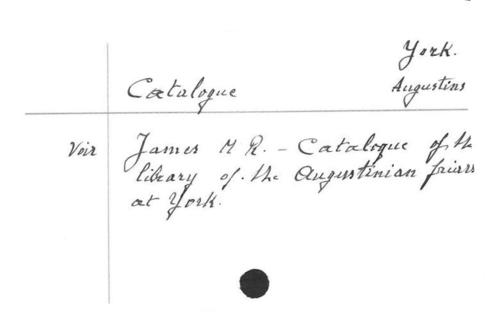 York.
Catalogue Augustins
Voir James M R. - Catalogue of th
library of the Augustinian friars
at York.